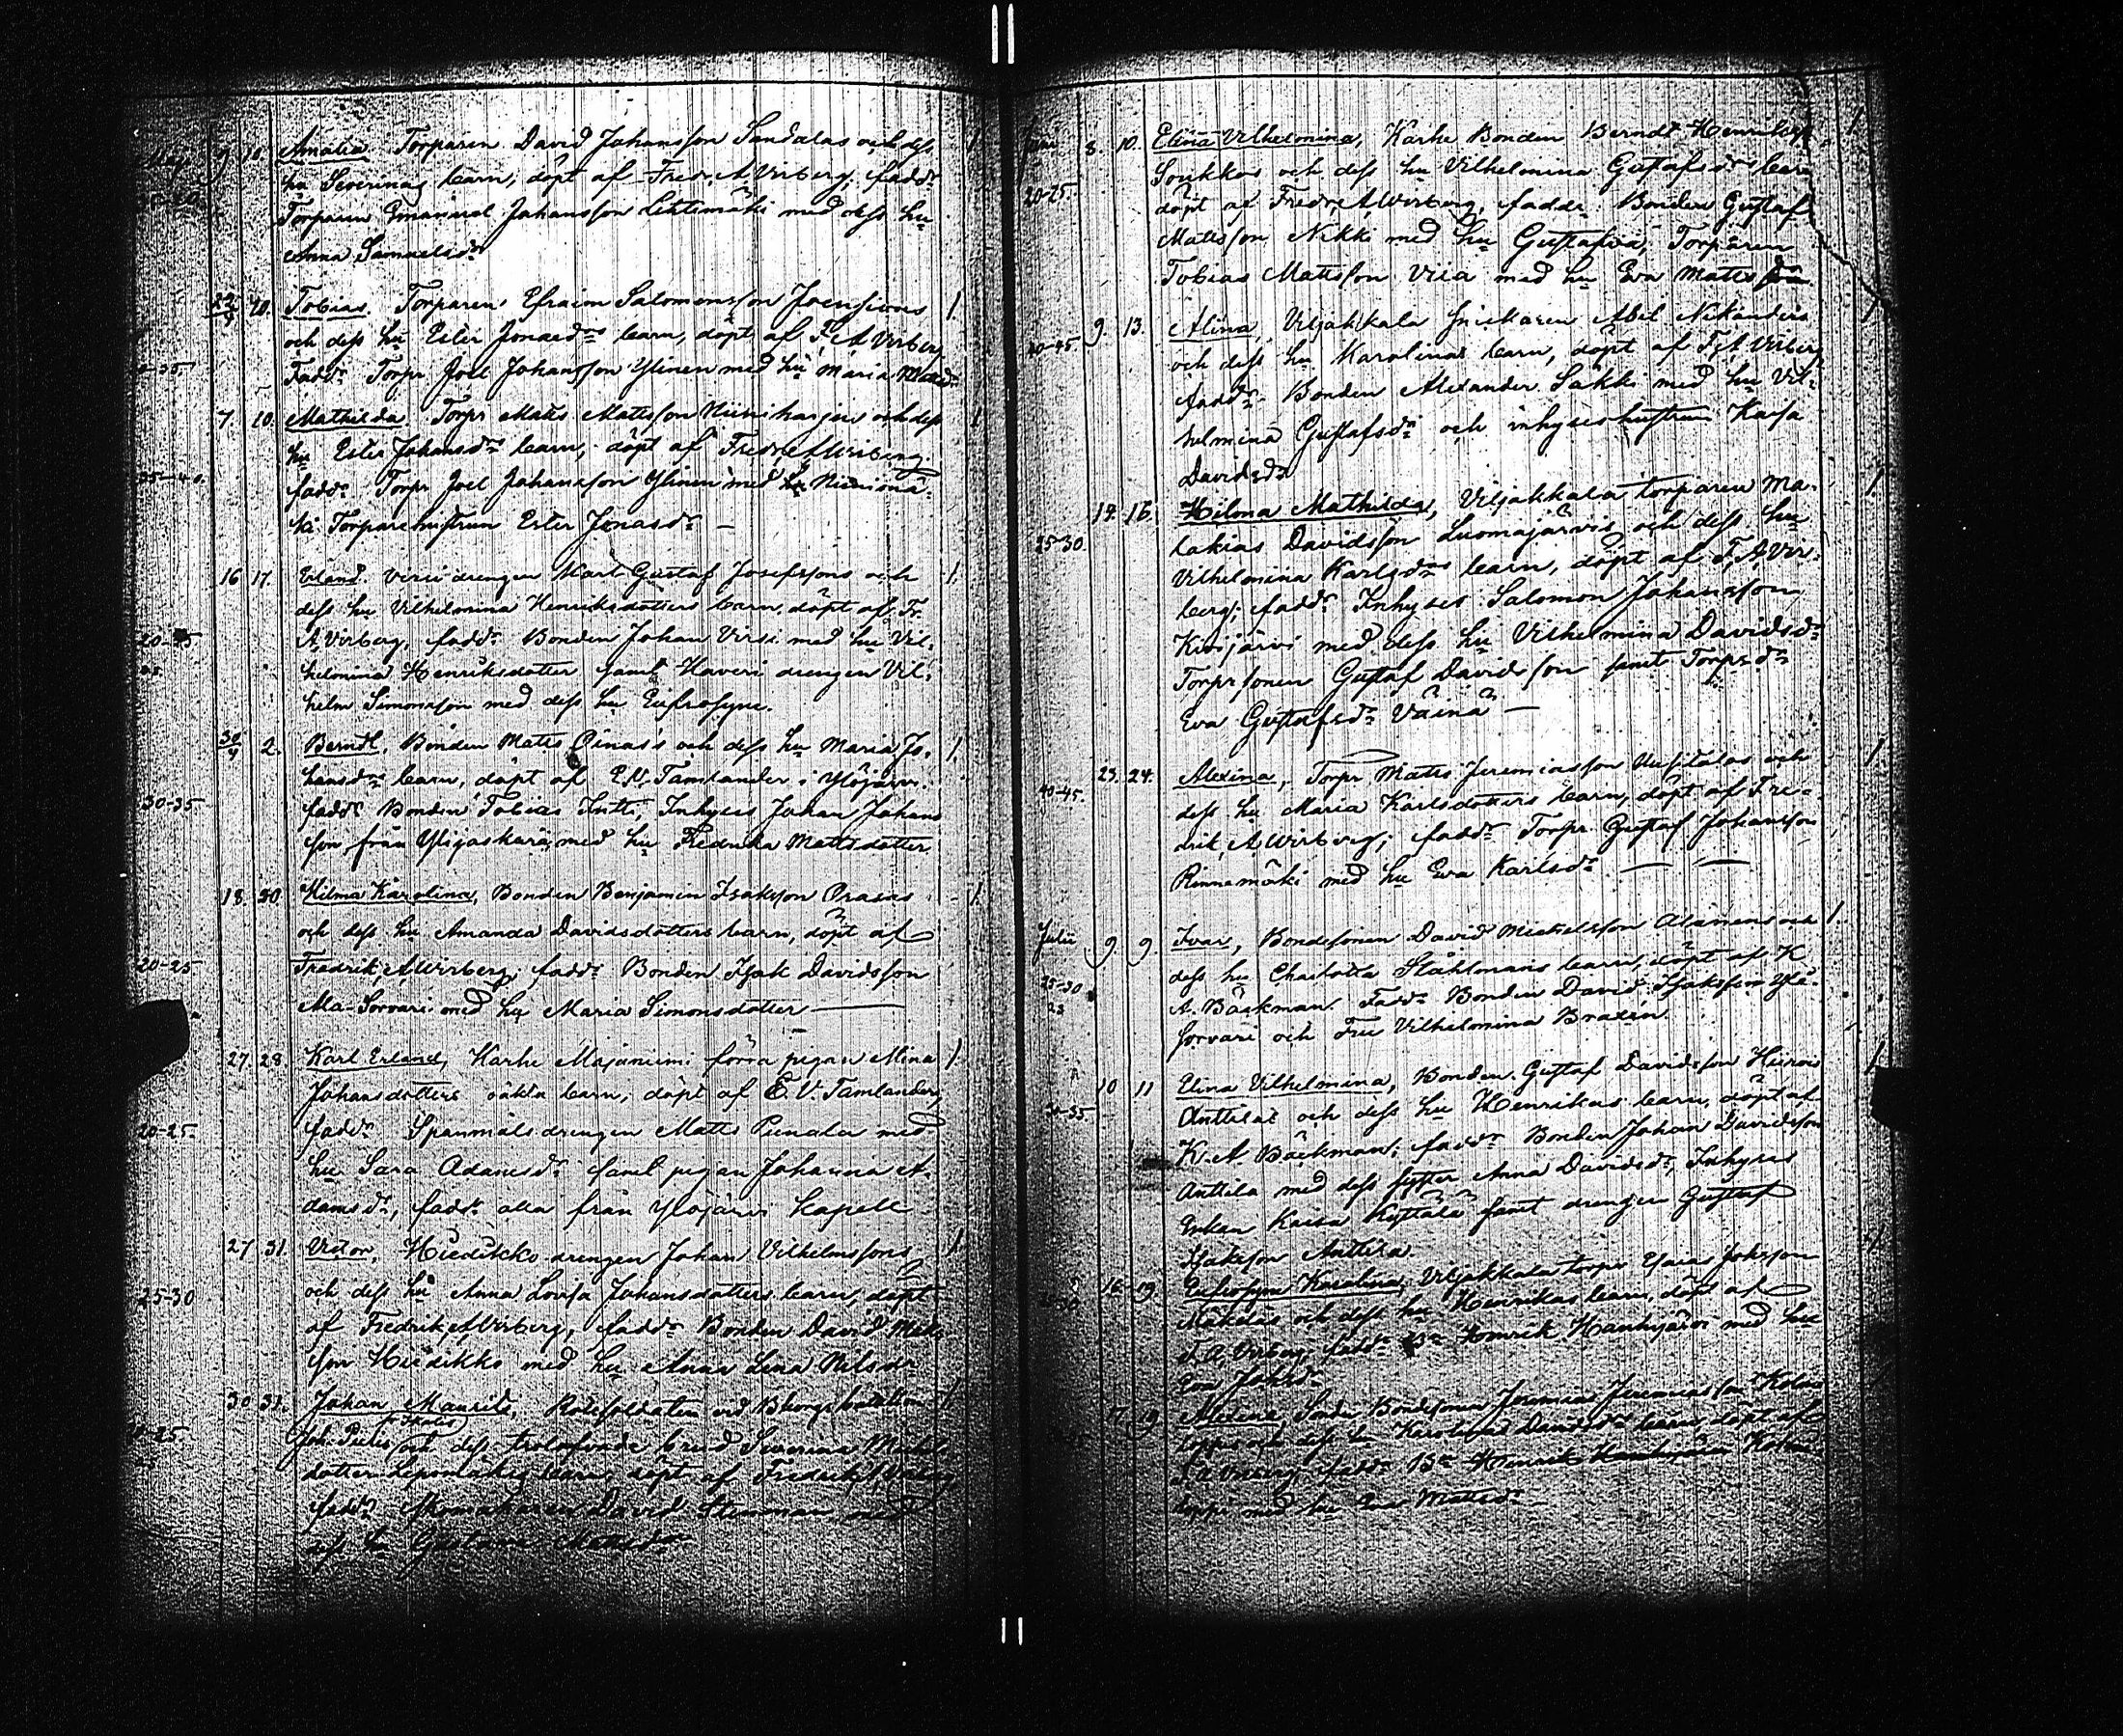 Maj 9 10. Amalia Torparen David Johansson Sandalas och dess
hu Severinas barn, döpt af Fredr. A. Wirberg; fadd.
Torparen Emanuel Johansson Lehtimäki med dess hu
Anna Samuelsdr
10. Tobias. Torparen Efraim Salomonsson Joensivus
och dess hu Ester Jonasdrs barn, döpt af F. A. Virberg
Fadd. Torpr Joel Johansson Ylinen med hu Maria
7 10. Mathilda Torpr Matts Mattsson Niiniharjus och dess
hu Ester Johansdrs barn; döpt af Fredr. A. Wirberg.
35-40. fadd. Torpr Joel Johansson Ylinen med hu
Torparehustrun Ester Jonasdr —
16 17. Erland. Virsu drengen Karl Gustaf Josefssons och
dess hu Vilhelmina Henriksdotters barn, döpt af Fr.
A. Virberg, fadd. Bonden Johan Virsu med hu Vil-
helmina Henriksdotter samt Haveri drengen Vil-
helm Simonsson med dess hu Eufrosyne.
30/4 2. Berndt, Bonden Matts Pinas's och dess hu Maria Jo-
hansdrs barn, döpt af E. V. Tamlander i Ylöjärvi.
30-35 fadd. Bonden Tobias Intti, Inhyses Johan Johans
son från Ylöjaskara, med hu Fredrika Mattsdotter
18. 20. Hilma Karolina, Bonden Benjamin Isaksson Prasas
och dess hu Amanda Davidsdotters barn, döpt af
20-25 Fredrik A. Wirberg, fadd. Bonden Isak Davidsson
Ala-Sorvari med hu Maria Simonsdotter —
27 28. Karl Erland, Karhe Majaniemi förra pigan Mina
Johansdotters oäkta barn; döpt af E. V. Tamlander,
20-25. fadd. Spanmålsdrengen Matts Punala med
hu Sara Adamsdr samt pigan Johanna A-
damsdr, fadd. alla från Ylöjärvi Kapell
27 31. Victor, Hiedikko drengen Johan Vilhelmssons
och dess hu Anna Lovisa Johansdotters barn, döpt
25-30 af Fredrik A. Virberg, fadd. Bonden David Matts
son Hiedikko med hu Anna Lena Nilsdr
30 31. Johan Maurits, Rotesoldaten vid Bborgs bataljon
och dess trolofvade brud Severina Michels
dotter barn, döpt af Fredrik A. Virberg
fadd. skomakaren David Stenman med
dess hu Gustava Mattsdr
Juni 8. 10. Elina Vilhelmina, Karhe Bonden Berndt Henriksson
20-25. Soukkos och dess hu Vilhelmina Gustafsdrs barn
döpt af Fredr. A. Wirberg, fadd. Bonden Gustaf
Mattsson Nikki med hu Gustafva, Torparen
Tobias Mattsson Viia med hu Eva Mattsdr
40-45. 9. 13. Alina, Viljakkala snickaren Abel Nikanders
och dess hu Karolinas barn, döpt af F. A. Virberg
fadd. Bonden Alexander Säkki med hu Vil-
helmina Gustafsdr och inhyseshustrun Kaisa
Davidsdr
14. 16. Hilma Mathilda, Viljakkala torparen Ma-
25-30. lakias Davidsson Luomajärvis och dess hu
Vilhelmina Karlsdrs barn, döpt af F. A. Vir-
berg; fadd. Inhyses Salomon Johansson
Kivijärvi med dess hu Vilhelmina Davidsdr
Torprsonen Gustaf Davidsson samt Torprdr
Eva Gustafsdr Väinä —
23. 24. Alexina, Torpr Matts Jeremiasson Uusitalos och
40-45. dess hu Maria Karlsdotters barn, döpt af Fre-
drik A. Wirberg; fadd. Torpr Gustaf Johansson
Rinnemäki med hu Eva Karlsdr —
Julii 9 9. Ivar, Bondesonen David Michelsson Alanens och
25-30 dess hu Charlotta Ståhlmans barn, döpt af K.
A. Bäckman. Fadd. Bonden David Isaksson Yli-
sorvari och Fru Vilhelmina Braxén.
10 11 Elina Vilhelmina, Bonden Gustaf Davidsson
30-35. Anttilas och dess hu Henrikas barn, döpt af
K. A. Bäckman; fadd. Bonden Johan Davidsson
Anttila med dess syster Anna Davidsdr, Inhyses
Enkan Kaisa Kyttälä samt drengen Gustaf
Isaksson Anttila
16 19. Eufrosyne Karolina, Viljakkala torpr Esaias Johsson
Mäkeläs och dess hu Henrikas barn, döpt af
F. A. Virberg, fadd. Bn Henrik Hanhijärvi med hu
Eva Johsdr
17. 19 Alexina, Bondesonen Jeremias Jeremiasson
och dess hu Karolina Davidsdrs barn, döpt af
F. A. Virberg, fadd. Bn
med hu Eva Mattsdr